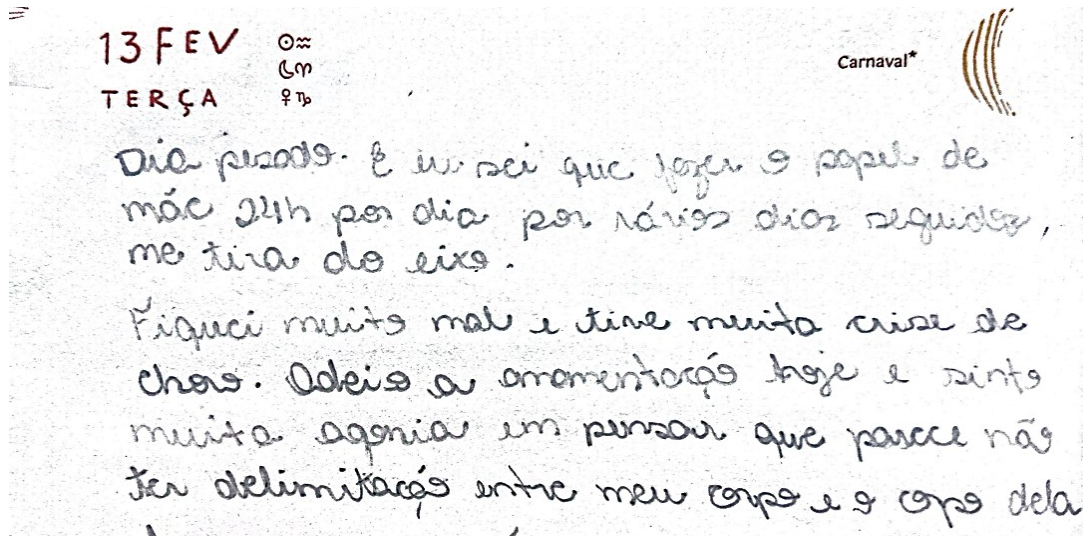 13 FEV ☉♒
☾♈ Carnaval*
TERÇA ♀♑
Dia pesado. E eu sei que fazer o papel de
mãe 24h por dia por vários dias seguidos,
me tira do eixo.
Fiquei muito mal e tive muita crise de
choro. Odeio a amamentação hoje e sinto
muita agonia em pensar que parece não
ter delimitação entre meu corpo e o copo dela